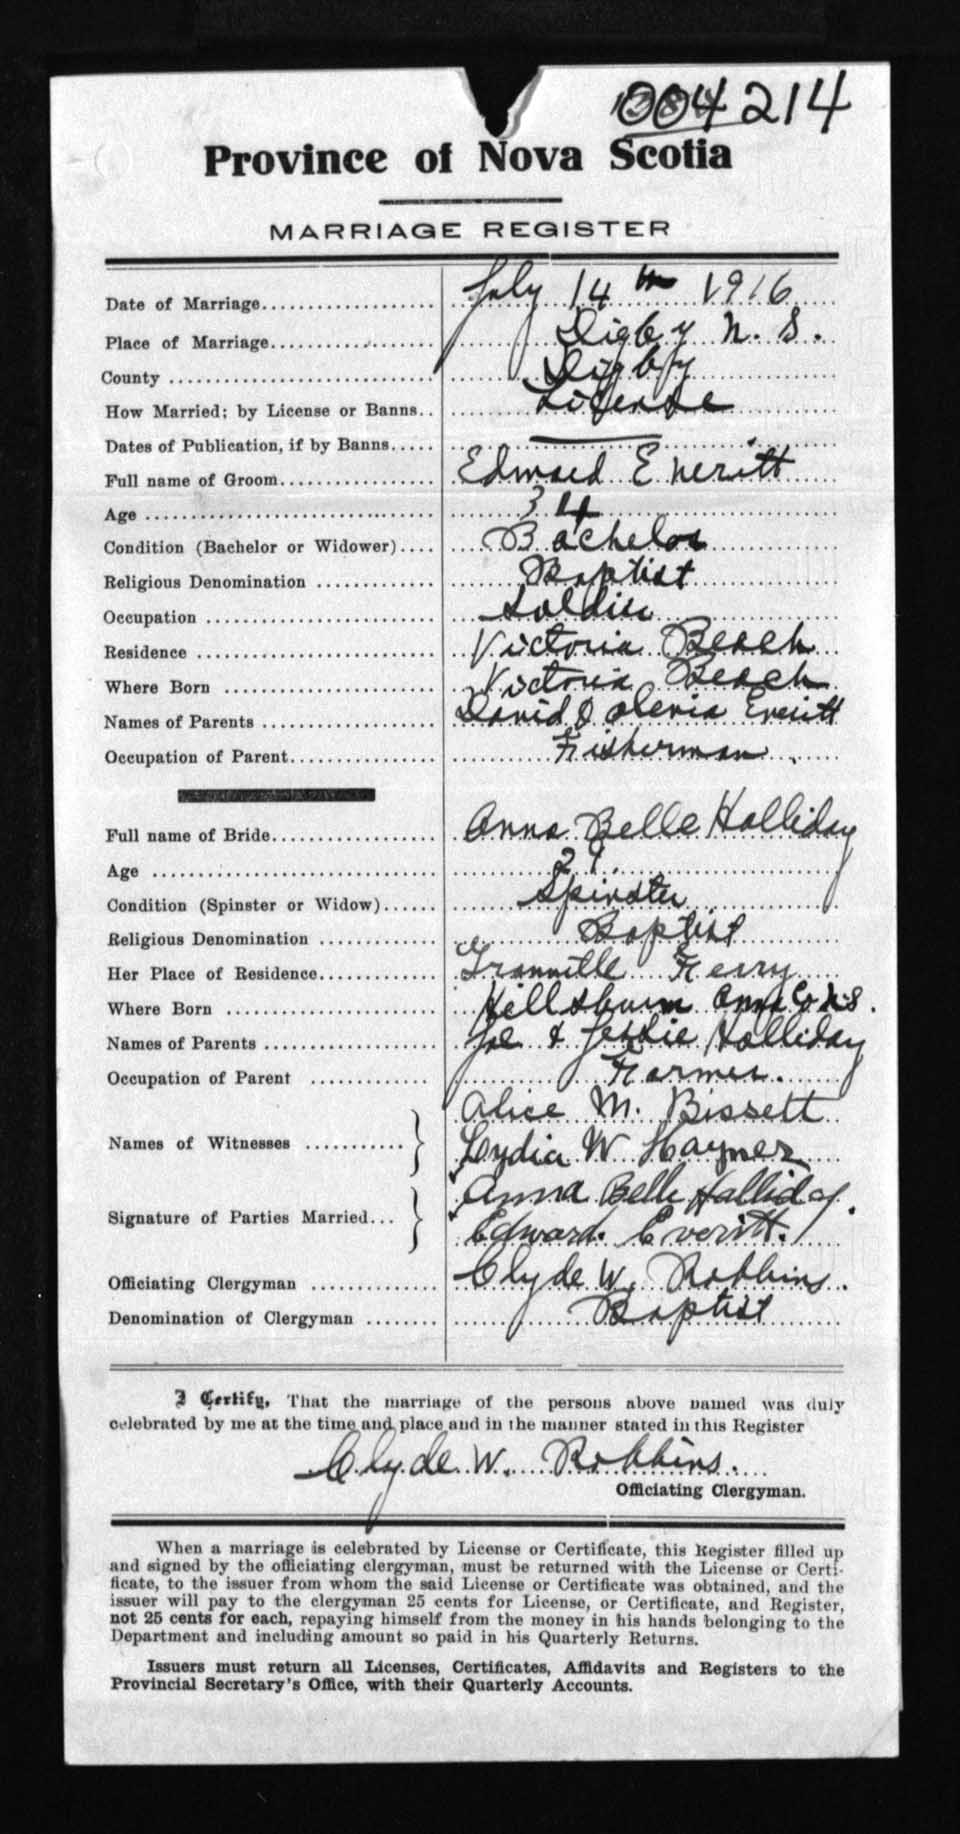 004214
Province of Nova Scotia
MARRIAGE REGISTER
Date of Marriage July 14th 1916
Place of Marriage Digby N. S.
County Digby
How Married; by License or Banns License
Dates of Publication, if by Banns
Full name of Groom Edward Everitt
Age 34
Condition (Bachelor or Widower) Bachelor
Religious Denomination Baptist
Occupation Soldier
Residence Victoria Beach
Where Born Victoria Beach
Names of Parents David & Everitt
Occupation of Parent Fisherman
Full name of Bride Anna Belle Halliday
Age 29.
Condition (Spinster or Widow) Spinster
Religious Denomination Baptist
Her Place of Residence Granville Ferry
Where Born Hillsburn Anna Co N.S.
Names of Parents Joe & Jessie Halliday
Occupation of Parent Farmer.
Names of Witnesses Alice M. Bissett
Lydia W Haynes
Signature of Parties Married Anna Belle Halliday.
Edward. Everitt.
Officiating Clergyman Clyde W. Robbins.
Denomination of Clergyman Baptist
I Certify, That the marriage of the persons above named was duly
celebrated by me at the time and place and in the manner stated in this Register
Clyde W. Robbins.
Officiating Clergyman.
When a marriage is celebrated by License or Certificate, this Register filled up
and signed by the officiating clergyman, must be returned with the License or Certi-
ficate, to the issuer from whom the said License or Certificate was obtained, and the
issuer will pay to the clergyman 25 cents for License, or Certificate, and Register,
not 25 cents for each, repaying himself from the money in his hands belonging to the
Department and including amount so paid in his Quarterly Returns.
Issuers must return all Licenses, Certificates, Affidavits and Registers to the
Provincial Secretary's Office, with their Quarterly Accounts.